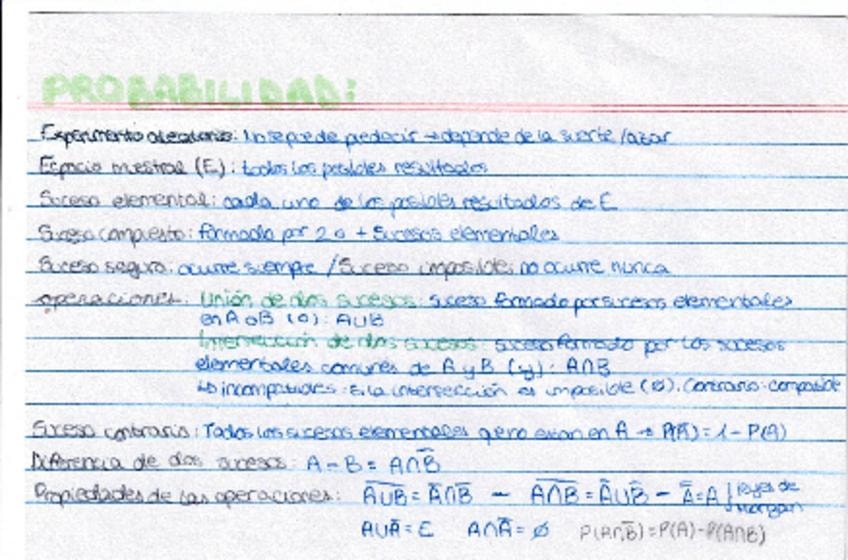 PROBABILIDAD:
Experimento aleatorio: No se puede predecir → depende de la suerte/azar
Espacio muestral (E): todos los posibles resultados
Suceso elemental: cada uno de los posibles resultados de E
Suceso compuesto: formado por 2 o + sucesos elementales
Suceso seguro: ocurre siempre / Suceso imposible: no ocurre nunca
operaciones: Unión de dos sucesos: suceso formado por sucesos elementales
en A o B (o): A∪B
Intersección de dos sucesos: suceso formado por los sucesos
elementales comunes de A y B (y): A∩B
↳ incompatibles: si la intersección es imposible (∅). Contrario: compatible
Suceso contrario: Todos los sucesos elementales que no están en A → P(A̅) = 1 - P(A)
Diferencia de dos sucesos: A - B = A∩B̅
Propiedades de las operaciones: A̅∪̅B̅ = A̅∩B̅ - A̅∩̅B̅ = A̅∪B̅ - A̿ = A | leyes de
Morgan
A∪A̅ = E A∩A̅ = ∅ P(A∩B̅) = P(A) - P(A∩B)